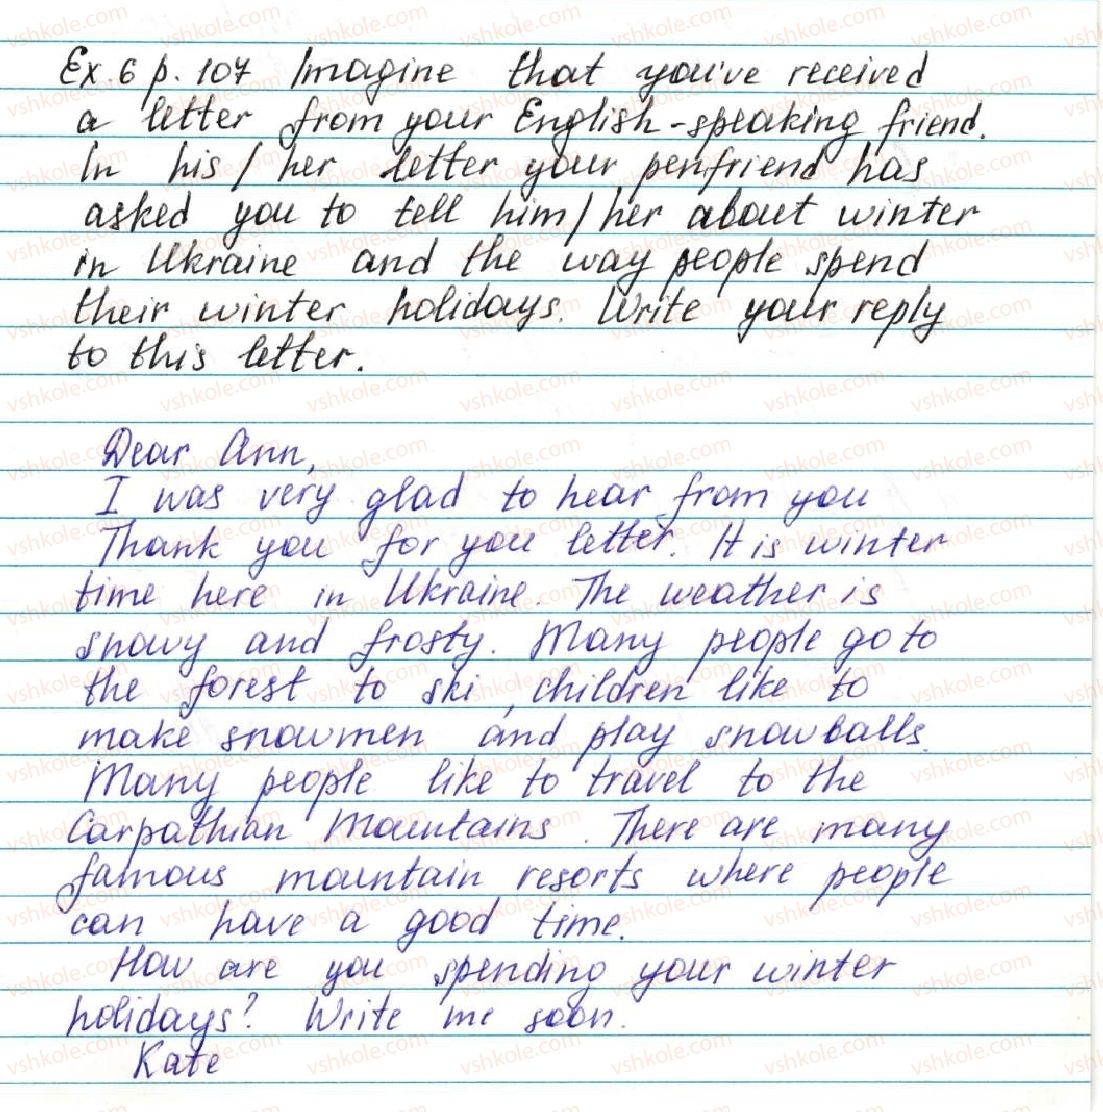 Ex. 6 p. 107 Imagine that you've received
a letter from your English-speaking friend.
In his / her letter your penfriend has
asked you to tell him / her about winter
in Ukraine and the way people spend
their winter holidays. Write your reply
to this letter.
Dear Ann,
I was very glad to hear from you
Thank you for you letter. It is winter
time here in Ukraine. The weather is
snowy and frosty. Many people go to
the forest to ski, children like to
make snowmen and play snowballs.
Many people like to travel to the
Carpathian Mountains. There are many
famous mountain resorts where people
can have a good time.
How are you spending your winter
holidays? Write me soon.
Kate